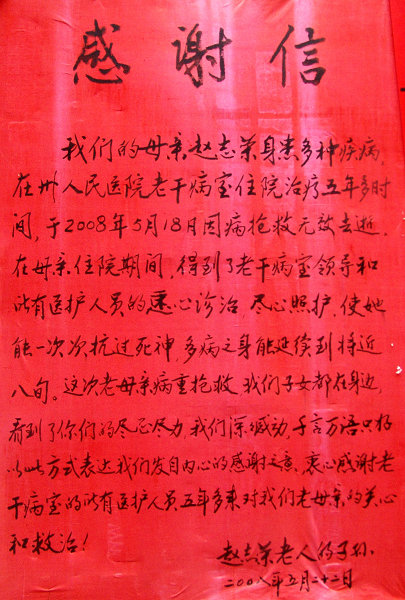 感谢信
我们的母亲赵志荣身患多种疾病,
在州人民医院老干病室住院治疗五年多时
间,于2008年5月18日因病抢救无效去逝.
在母亲住院期间,得到了老干病室领导和
所有医护人员的悉心诊治,尽心照护,使她
能一次次抗过死神,多病之身能延续到将近
八旬。这次老母亲病重抢救,我们子女都在身边,
看到了你们的尽心尽力,我们深感动,千言万语只好
以此方式表达我们发自内心的感谢之意,衷心感谢老
干病室的所有医护人员五年多来对我们老母亲的关心
和救治!
赵志荣老人的子孙
二00八年五月二十二日